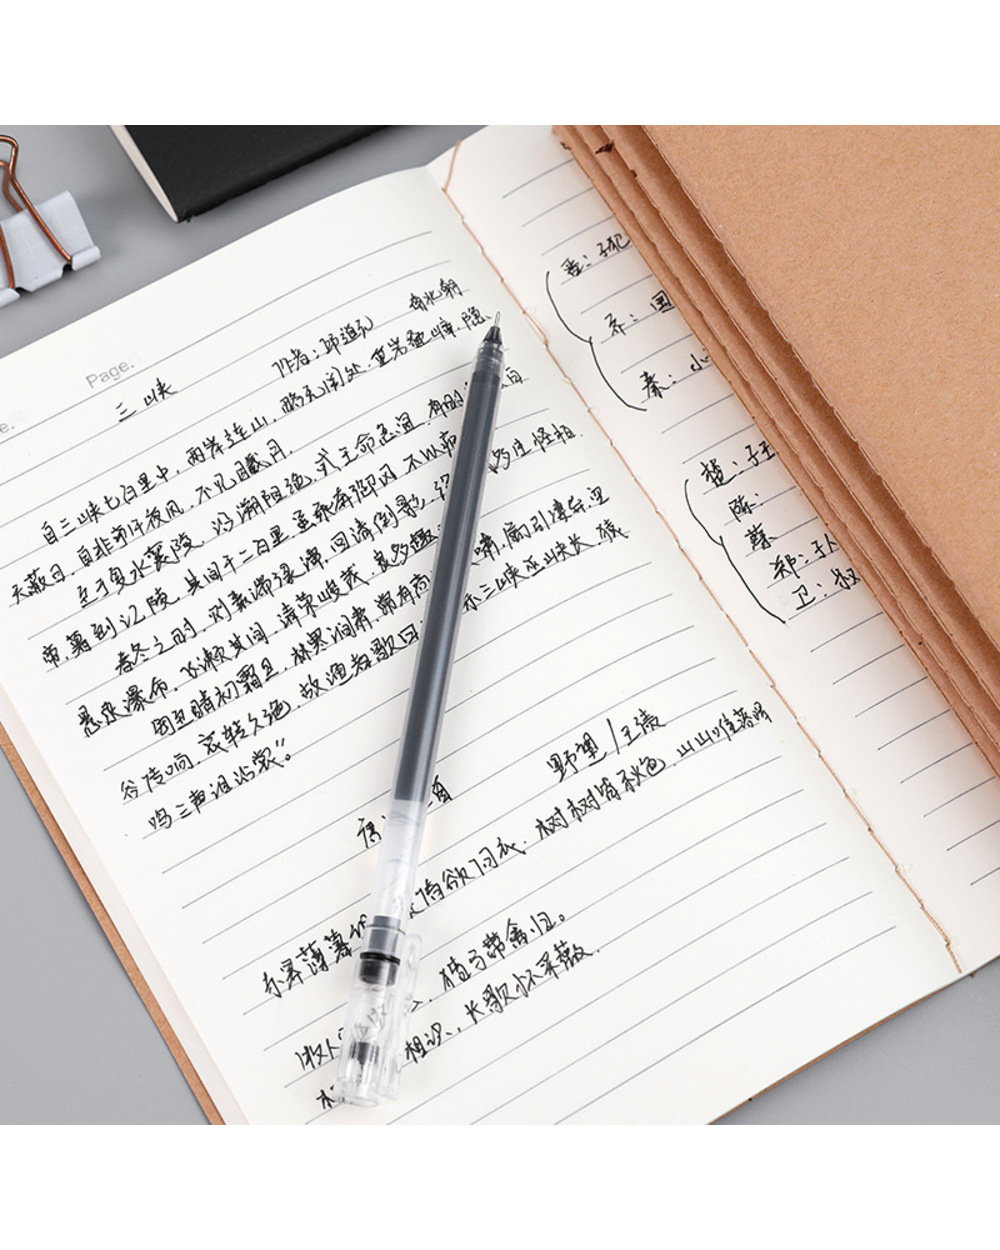 Page.
e.
三峡
作者：郦道元 南北朝
自三峡七百里中，两岸连山，略无阙处。重岩叠嶂，隐
天蔽日，自非亭午夜风，不见曦月。
至于夏水襄陵，沿溯阻绝，或王命急宣，有时 白
帝，暮到江陵，其间千二百里，虽乘奔御风，不以疾
春冬之时，则素湍绿潭，回清倒影，绝 多生怪柏
悬泉瀑布，飞漱其间，清荣峻茂，良多趣
每至晴初霜旦，林寒涧肃，常有高 啸，属引凄异，空
谷传响，哀转久绝。故渔者歌曰： 东三峡巫峡长，猿
鸣三声泪沾裳”。
野望/王绩
唐
倚欲 树树皆秋色，山山唯落晖
东皋薄暮
牧人 猎马带禽归。
相 相识，长歌怀采薇
晋：
齐：国
秦：小
楚：子玉
陈：
蔡
郑：
卫：叔